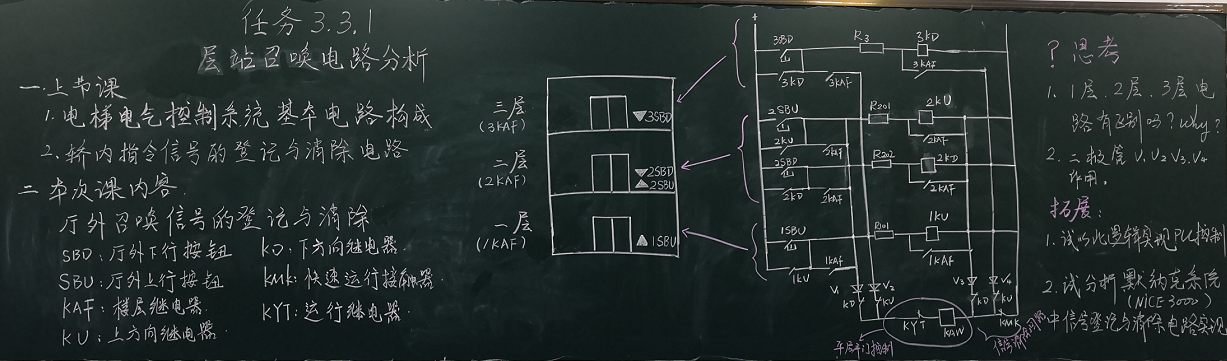 任务3.3.1
层站召唤电路分析
一.上节课
1.电梯电气控制系统基本电路构成
2.轿内指令信号的登记与消除电路
二.本次课内容.
厅外召唤信号的登记与消除
SBD:厅外下行按钮
KD:下方向继电器.
SBU:厅外上行按钮
KMK:快速运行接触器.
KAF:楼层继电器.
KYT:运行继电器.
KU:上方向继电器.
三层
(3KAF)
▼3SBD
二层
(2KAF)
▼2SBD
▲2SBU
一层
(1KAF)
▲1SBU
+
3SBD
R3
3KD
3KD
3KAF
3KAF
2SBU
R201
2KU
2KU
2KAF
2KAF
2SBD
R202
2KD
2KD
2KAF
2KAF
1SBU
R101
1KU
1KU
1KAF
1KAF
V1
V2
V3
V4
KD
KU
KD
KU
KYT
KAW
KMK
?思考
1.1层、2层、3层电
路有区别吗?Why?
2.二极管V1 V2 V3.V4
作用。
拓展:
1.试以此逻辑实现PLC控制
2.试分析默纳克系统
(NICE3000)
中信号登记与消除电路实现